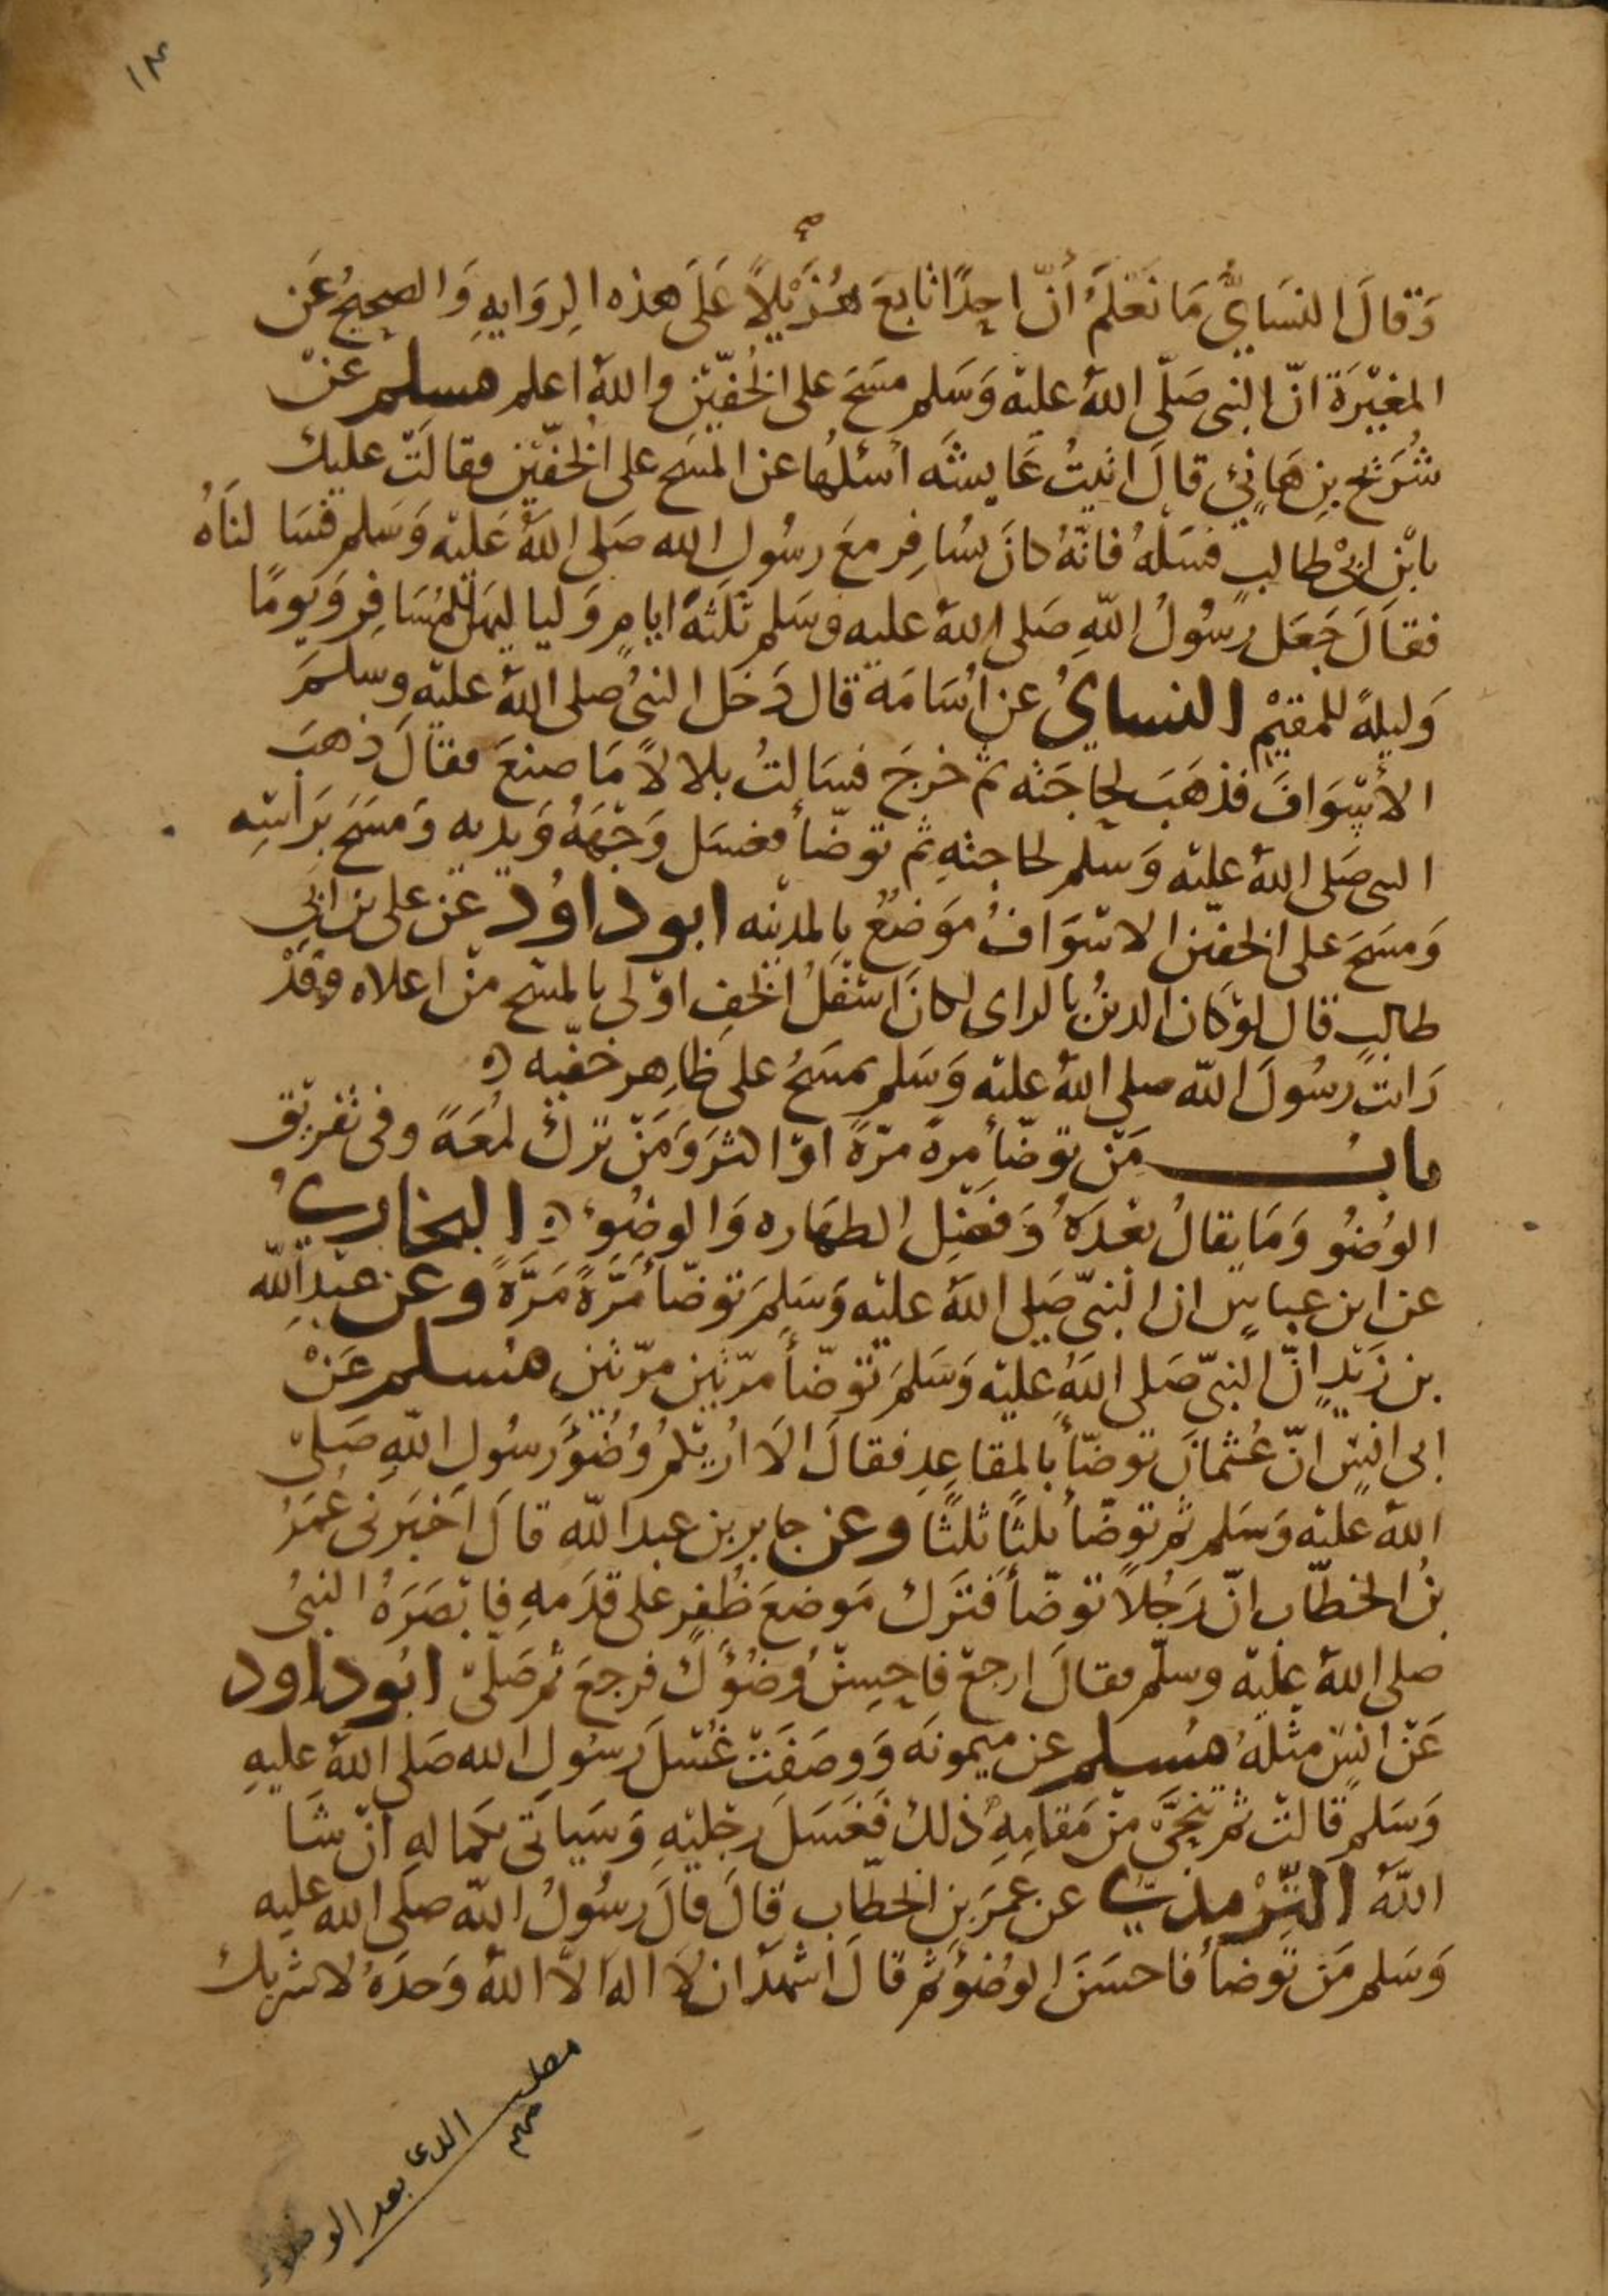 ١٤
وَقَالَ النسَايُّ مَا نَعْلَمُ أنّ احِدًا تابَعَ هُزَيْلًا عَلَى هذه الرِوَايهِ وَالصحِيحُ عَن
المغيْرَة انّ النبى صَلّى اللهُ عليْه وَسَلم مسَحَ على الخُفّيْن واللهُ اعلم مسلم عَنْ
شُرَيْح بِن هَانِئ قالَ اتيتُ عَايشَه أسئلُهَا عن المسَح على الخُفّيْن فقالَتْ عليك
بابْن ابىْ طالبٍ فسَلهُ فانّهُ كانَ يسُافِر معَ رسُولِ الله صَلى اللهُ عَليْه وَسَلم فسَالنَاهُ
فقالَ جَعَل رسُولُ اللهِ صَلى اللهُ عليه وسَلم ثلثةَ ايامٍ وَلياليهنّ للمُسَافِر وَيومًا
وَليلةً للمقيْم النسايُ عن أسَامَة قال دَخل النبىُ صلى اللهُ عليْه وسلمَ
الأسْوَافَ فذهَبَ لحاجَته ثم خرجَ فسَالتُ بلالًا مَا صنعَ فقالَ ذهبَ
النبى صَلى اللهُ عليْه وَسَلم لحاجتهِ ثم توضّأ فغسَل وَجْهَهُ وَيديه وَمسَحَ بَراسِه
وَمسَحَ على الخفيْن الاسْوَافُ مَوضعٌ بالمدينه ابوداوُد عَن على بن ابى
طالبٍ قال لوْ كان الدينُ بالراى لكانَ اسْفلُ الخُفِ اوْلى بالمسْح منْ اعلاه وَقدْ
رَايتُ رسُولَ الله صلى اللهُ عليْه وَسَلم يمسَحُ على ظاهِر خفيّه ه
بابُ مَنْ توضّأ مرةً مرّةً اوْ اكثرَ وَمَنْ ترَكَ لمُعَةً وفى تفريْق
الوُضُو وَمَا يقالُ بعْدَهُ وَفضْلِ الطهَاره وَالوضُوءِ ه البخارىُ
عن ابن عباسٍ ان النبىّ صَلى اللهُ عليْه وَسَلمَ توضّأ مَرَّةً مَرَّةً وعن عبْدِ الله
بن زيْدٍ انّ النبىّ صَلى اللهُ عليْه وَسَلمَ توَضّأ مرّتين مرّتين مسلم عَنْ
ابى انسٍ انّ عُثمانَ توضّأ بالمقاعِدِ فقالَ الَا اُريْكُمُ وُضُوءَ رسُولِ اللهِ صَلى
اللهُ عليْه وَسَلم ثم توضّأ ثلثًا ثلثًا وعن جابر بن عبد اللهِ قالَ اخبَرنى عُمَرُ
بنُ الخطّاب انّ رَجُلًا توضّأ فتَرَك مَوضعَ ظُفرٍ على قدَمهِ فابْصَرَهُ النبىُ
صلى اللهُ عليْه وسلّم فقالَ ارجعْ فاحِسنْ وُضُوَءك فرجعَ ثم صَلىْ ابُوداود
عَنْ انسٍ مثلهُ مُسلم عن ميمونَه وَوصَفَتْ غُسْلَ رسُولِ الله صَلى اللهُ عليهِ
وَسَلم قالتْ ثم تنحَّى منْ مَقامِهِ ذلك فَغسَلَ رجْليْهِ وَسَياتى بكماله انْ شَا
اللهُ التِّرْمذىُّ عن عمَرَ بنِ الخطّاب قالَ قالَ رسُولُ الله صلى الله عليه
وَسَلم مَن توضأ فاحسَنَ الوُضُوءَ ثم قالَ اشهَدُ ان لا اله الّا اللهُ وَحدَهُ لا شريك
مطلب
مهم
بعد الوضوء